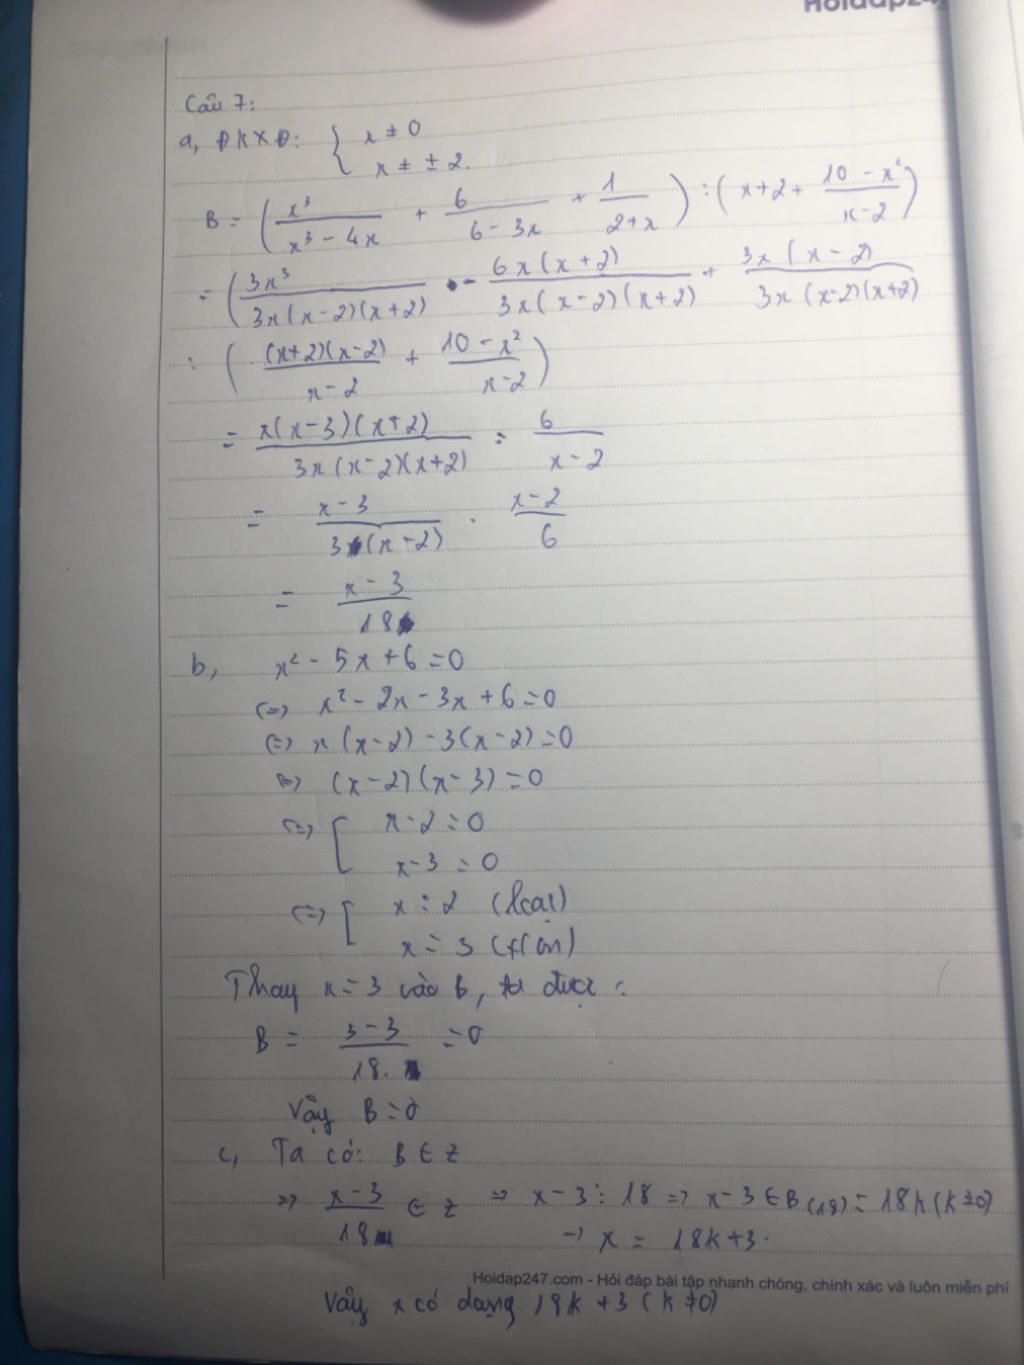 Hoidap247
Câu 7:
a, ĐKXĐ: { x ≠ 0
x ≠ ± 2.
B = ( x³/(x³ - 4x) + 6/(6 - 3x) + 1/(2+x) ) : ( x+2 + (10 - x²)/(x-2) )
= ( 3x³/(3x(x-2)(x+2)) - 6x(x+2)/(3x(x-2)(x+2)) + 3x(x-2)/(3x(x-2)(x+2))
: ( (x+2)(x-2)/(x-2) + (10 - x²)/(x-2) )
= x(x-3)(x+2)/(3x(x-2)(x+2)) : 6/(x-2)
= (x-3)/(3(x-2)) . (x-2)/6
= (x-3)/18
b, x² - 5x + 6 = 0
(=) x² - 2x - 3x + 6 = 0
(=) x(x-2) - 3(x-2) = 0
(=) (x-2)(x-3) = 0
(=) [ x-2 = 0
x-3 = 0
(=) [ x = 2 (loại)
x = 3
Thay x = 3 vào B, ta được :
B = (3-3)/18. = 0
Vậy B = 0
c, Ta có: B ∈ Z
=> (x-3)/18 ∈ Z => x-3 ⋮ 18 => x-3 ∈ B(18) = 18k (k ≠ 0)
→ x = 18k+3.
Hoidap247.com - Hỏi đáp bài tập nhanh chóng, chính xác và luôn miễn phí
Vậy x có dạng 18k + 3 (k ≠ 0)